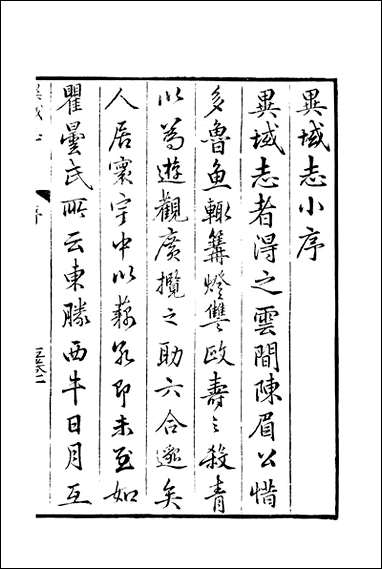 異域志小序
異域志者得之雲間陳眉公惜
多魯魚輒篝燈讐政壽之殺青
以為遊觀廣攬之助六合遼矣
人居寰宇中以藐即未至如
瞿曇氏所云東勝西牛日月互
序